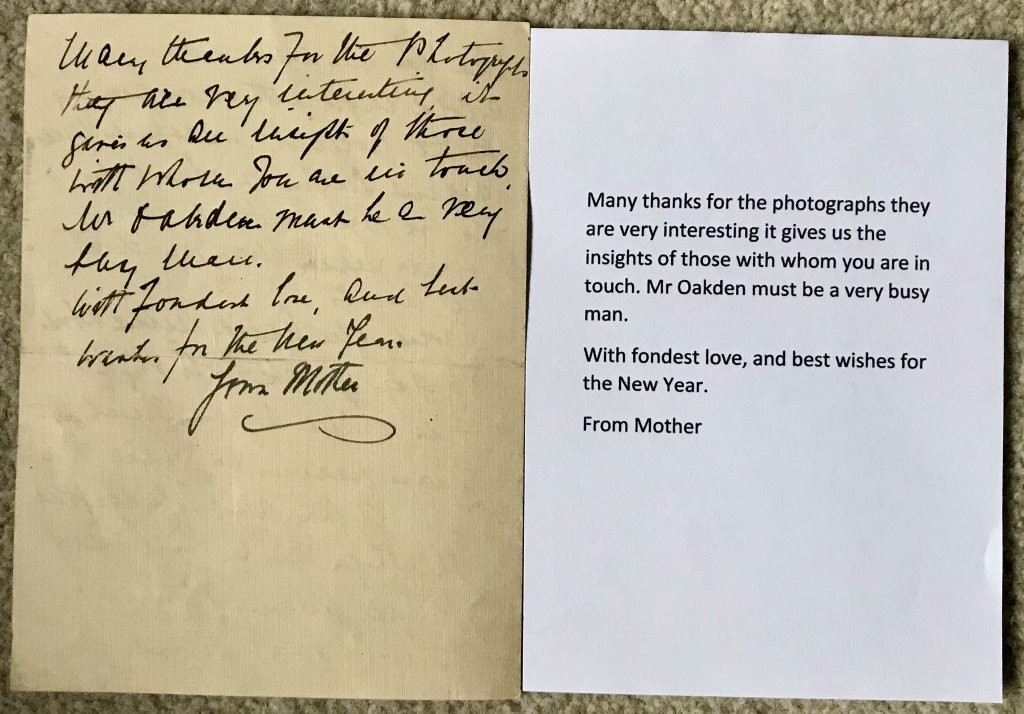 Many thanks for the Photographs
they are very interesting, it
gives us an insight of those
with whom you are in touch.
Mr Oakden must be a very
busy man.
With fondest love, and best
wishes for the New Year.
from Mother
Many thanks for the photographs they
are very interesting it gives us the
insights of those with whom you are in
touch. Mr Oakden must be a very busy
man.
With fondest love, and best wishes for
the New Year.
From Mother